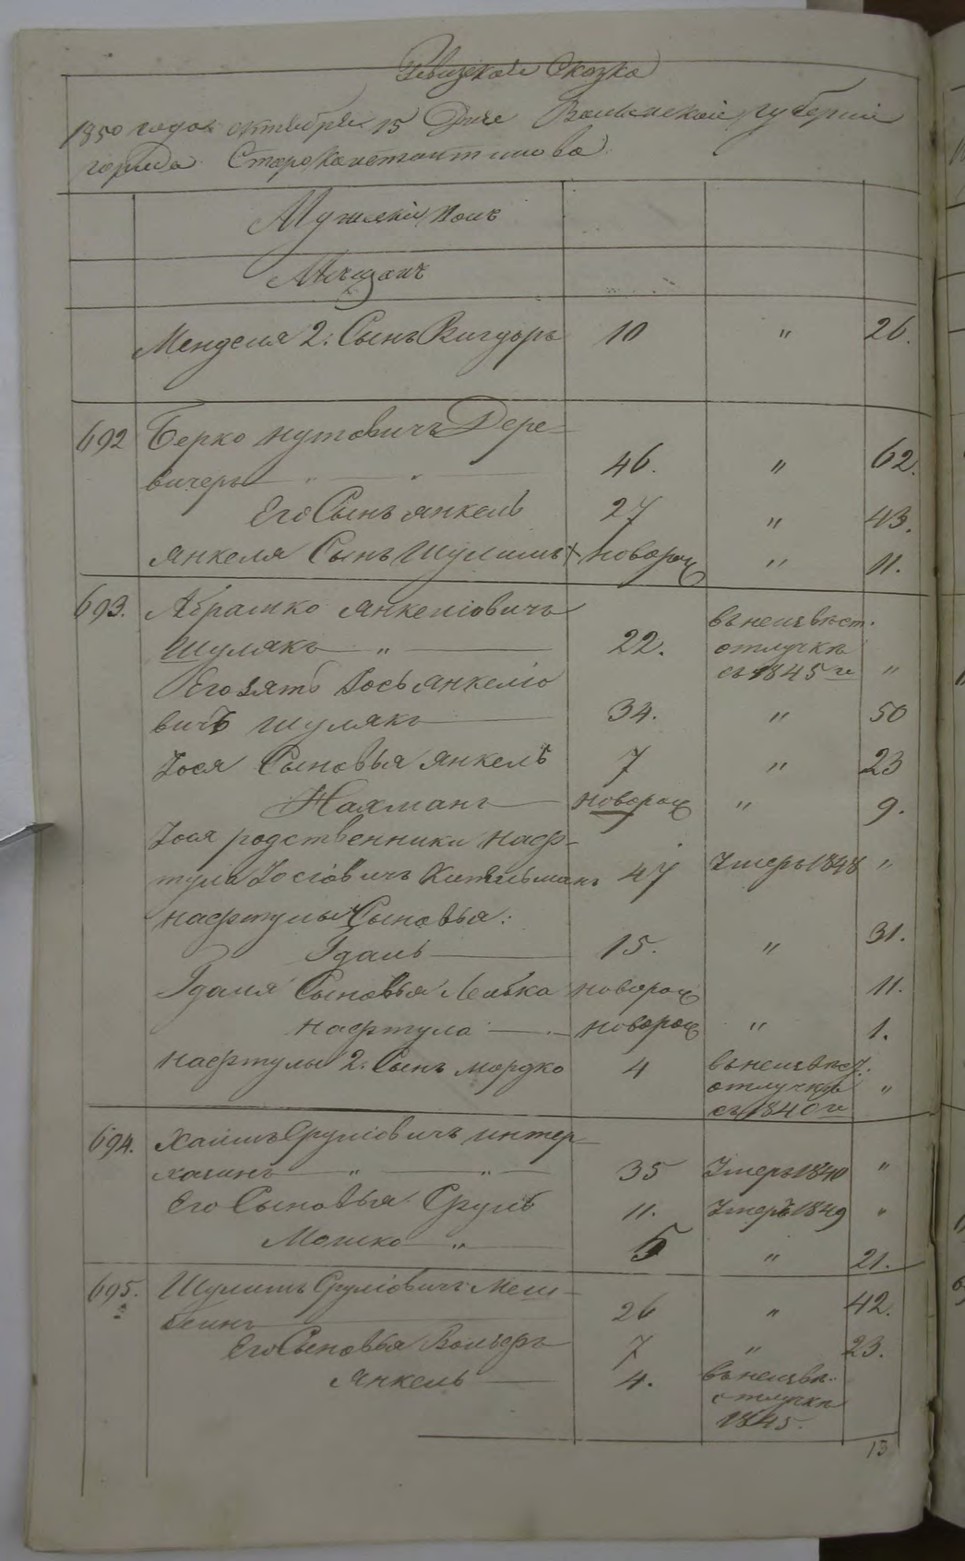 Ревизская Сказка
1850 года октября 15 Дня Волынской губернии
города Староконстантинова
Мужский полъ
Мѣщанъ
Менделя 2: Сынъ Вигдоръ 10 " 26.
692 Берко Нутовичъ Дере-
вичеръ " 46. " 62.
Его Сынъ Янкель 27 " 43.
Янкеля Сынъ Шулимъ + новорож " 11.
693. Абрамко Янкеліовичъ
Шулякъ " 22. въ неизвѣст. отлучкѣ съ 1845 го "
Его Зять Іось Янкеліо
вичъ Шулякъ 34. " 50
Іося Сыновья Янкель 7 " 23
Нахманъ новорож " 9.
Іося родственники Наф-
тула Іосіовичъ Кительманъ 47 Умеръ 1848 "
Нафтулы Сыновья:
Гдаль 15. " 31.
Гдаля Сыновья Лейбко новорож 11.
Нафтула новорож " 1.
Нафтулы 2: Сынъ Мордко 4 въ неизвѣст. отлучкѣ съ 1840 го "
694. Хаимъ Сруліовичъ Интер-
" " 35 Умеръ 1840 "
Его Сыновья Сруль 11. Умеръ 1849 "
Мошко " 5 " 21.
695. Шулимъ Сруліовичъ
26 " 42.
Его Сыновья Вольфъ 7 " 23.
Янкель 4. въ неизвѣ. отлучкѣ 1845.
13